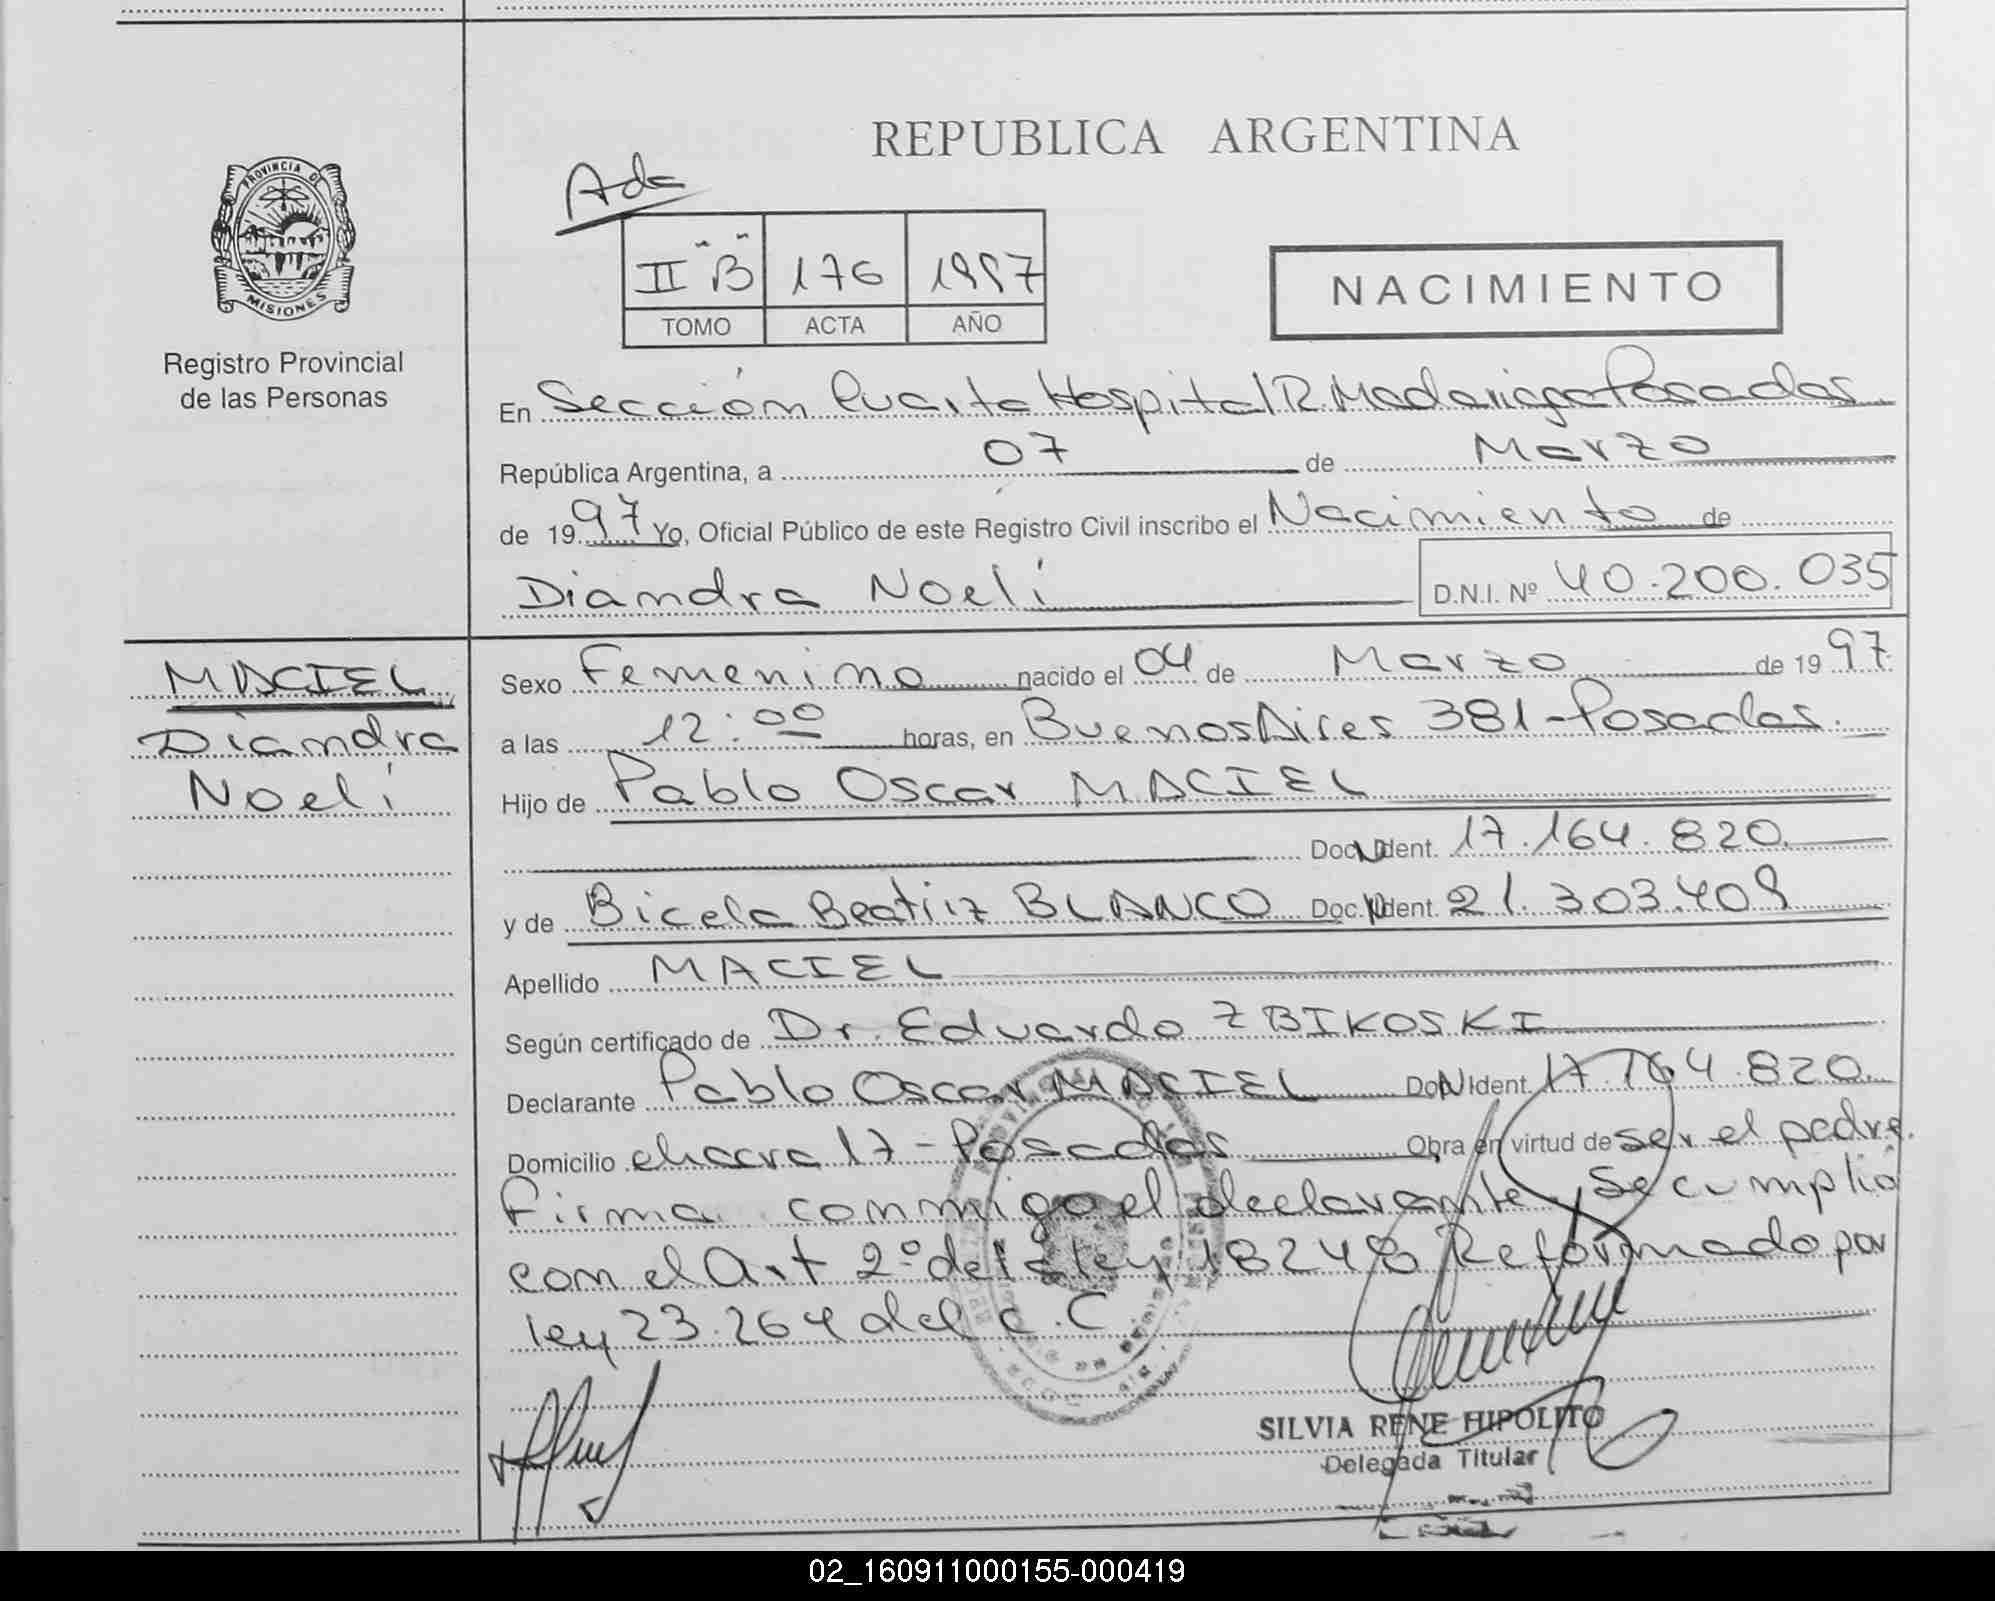 REPUBLICA ARGENTINA
PROVINCIA DE
MISIONES
Registro Provincial
de las Personas
Ada
II "B" 176 1997
TOMO ACTA AÑO
NACIMIENTO
En Sección Cuarta Hospital R. Madariaga Posadas
República Argentina, a 07 de Marzo
de 1997 Yo, Oficial Público de este Registro Civil inscribo el Nacimiento de
Diandra Noelí
D.N.I. Nº 40.200.035
MACIEL
Diandra
Noelí
Sexo Femenino nacido el 04 de Marzo de 1997
a las 12:00 horas, en Buenos Aires 381-Posadas.
Hijo de Pablo Oscar MACIEL
Doc. N Ident. 17.164.820
y de Bicela Beatriz BLANCO Doc. N Ident. 21.303.409
Apellido MACIEL
Según certificado de Dr. Eduardo ZBIKOSKI
Declarante Pablo Oscar MACIEL Doc N Ident. 17.164.820
Domicilio chacra 17-Posadas Obra en virtud de ser el padre.
Firma conmigo el declarante, Se cumplió
con el Art 2º de la ley 18248 Reformado por
ley 23.264 del C.C
SILVIA RENE HIPOLITO
Delegada Titular
02_160911000155-000419